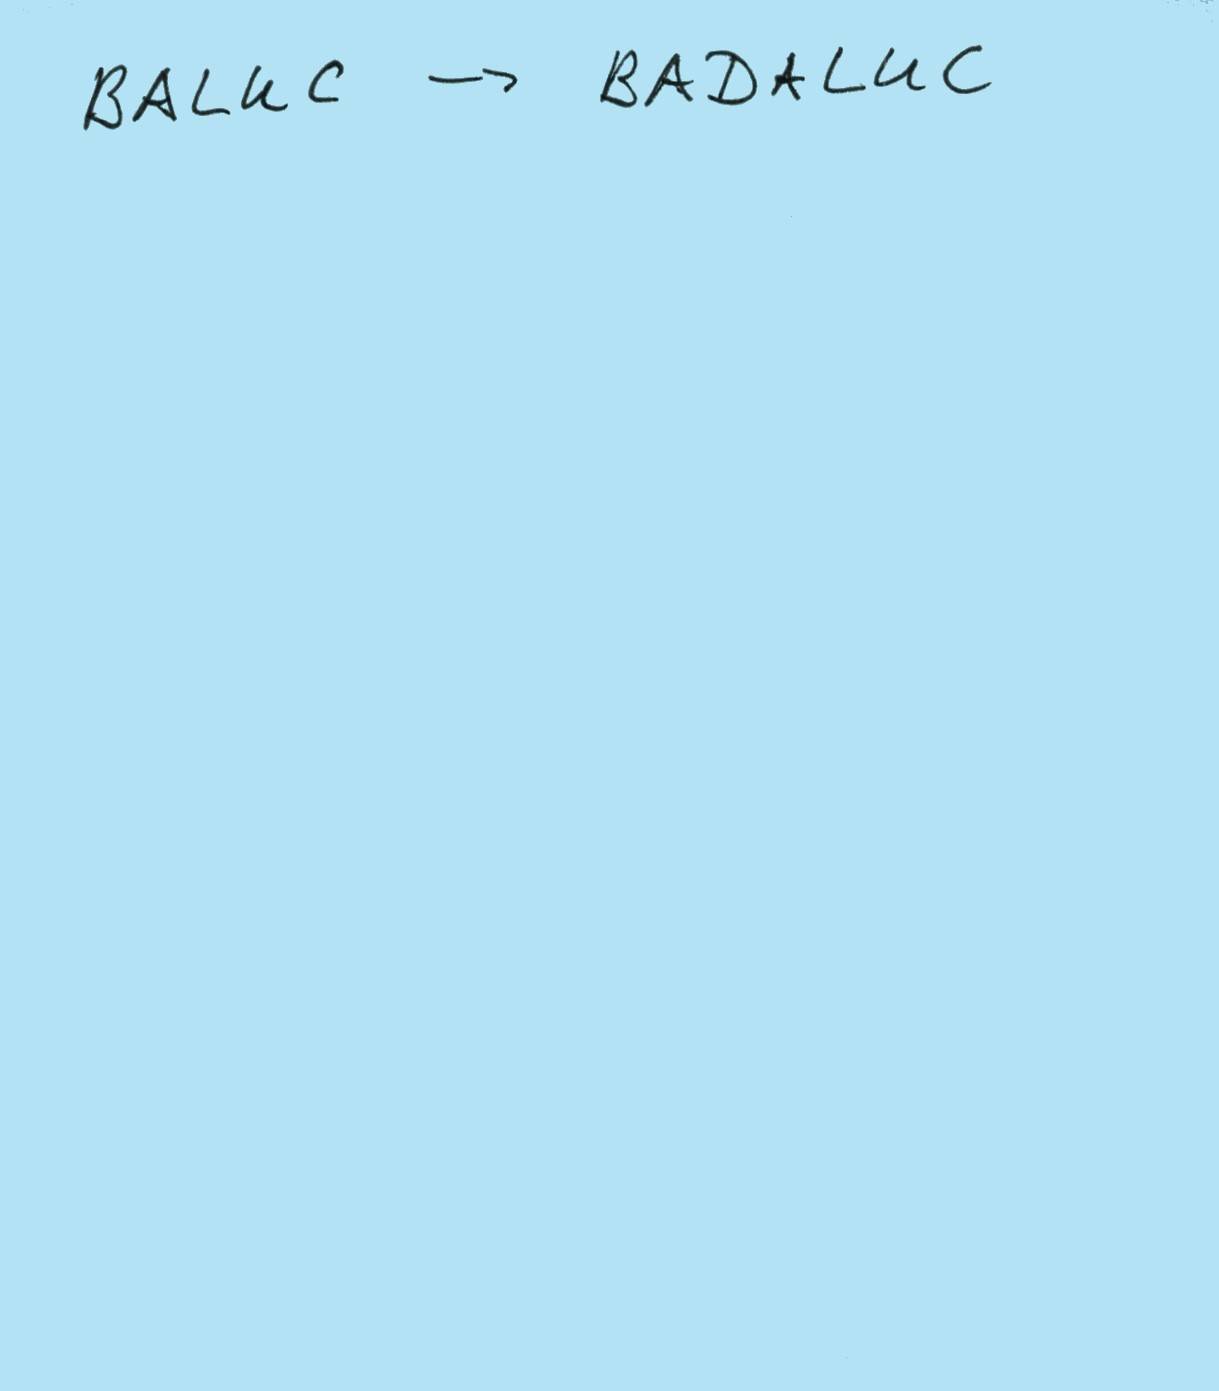 BALUC → BADALUC